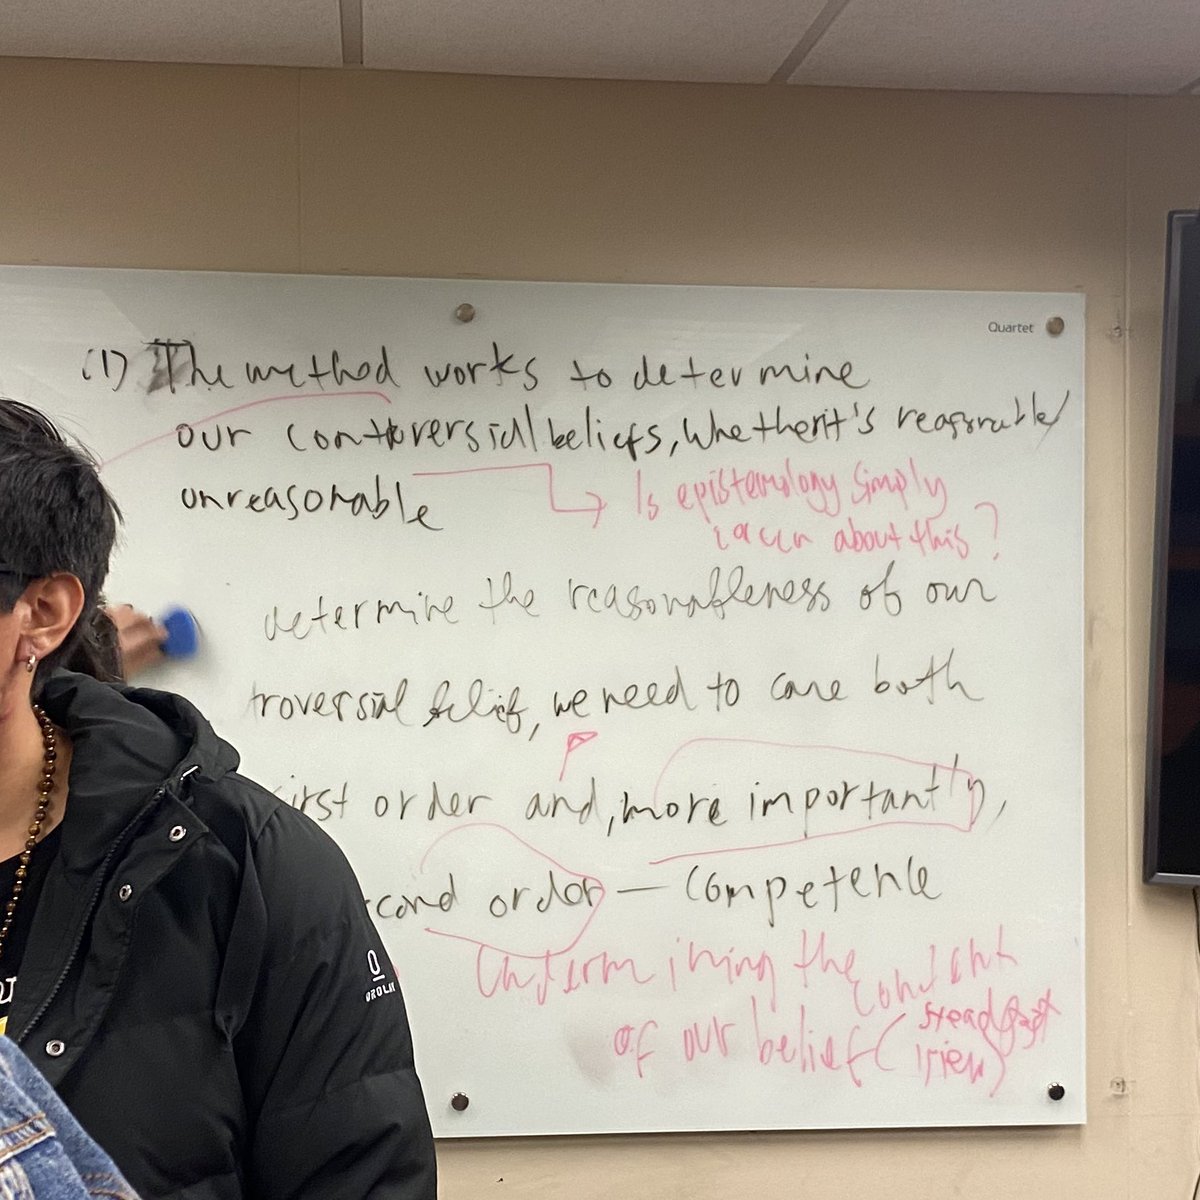 Quartet
(1) The method works to determine
our controversial beliefs, whether it's reasonable/
unreasonable
Is epistemology simply
about this?
determine the reasonableness of our
troversial belief, we need to care both
irst order and, more importantly,
cond order — competence
Undermining the content
of our belief (steadfast
view)